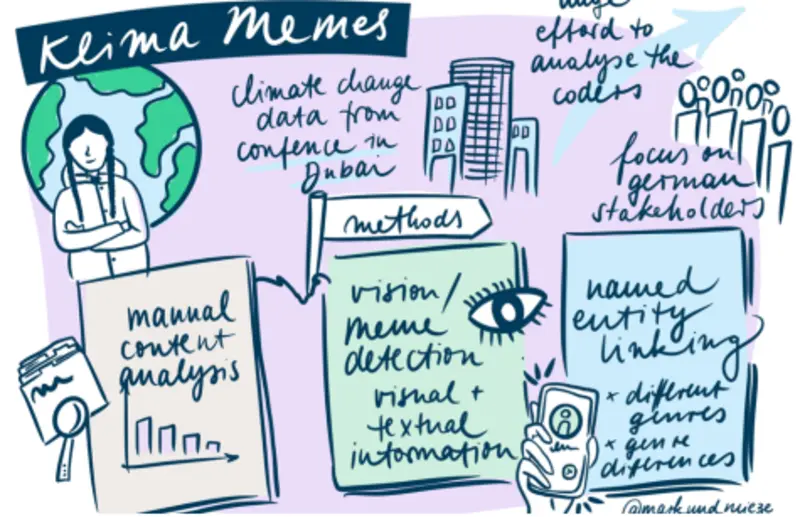 Klima Memes
climate change
data from
confence in
Dubai
efford to
analyse the
coders
focus on
german
stakeholders
methods
manual
content
analysis
vision/
meme
detection
visual +
textual
information
named
entity
linking
x different
genres
x genre
diferences